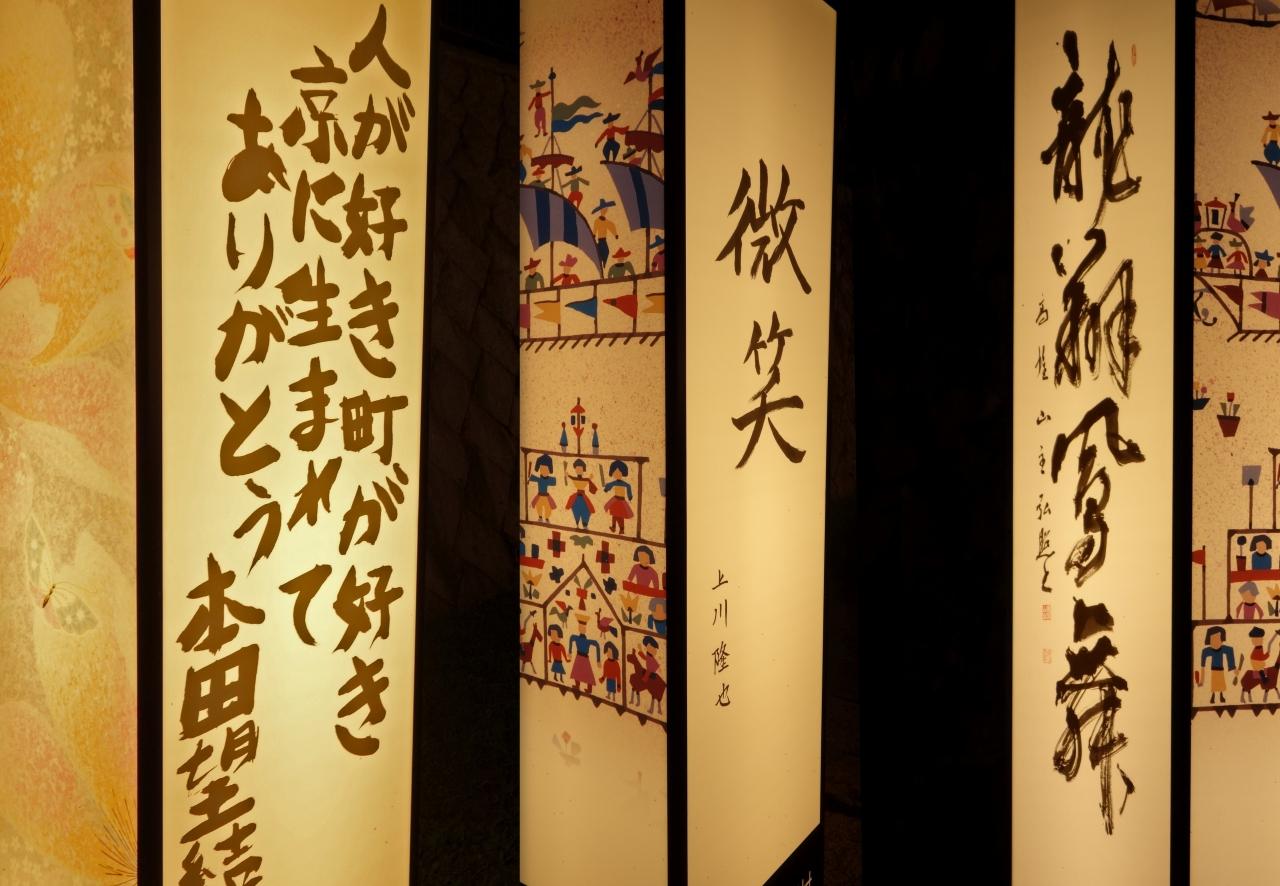 人が好き町が好き
京に生まれて
ありがとう
本田望結
微笑
上川隆也
龍翔鳳舞
山主弘照